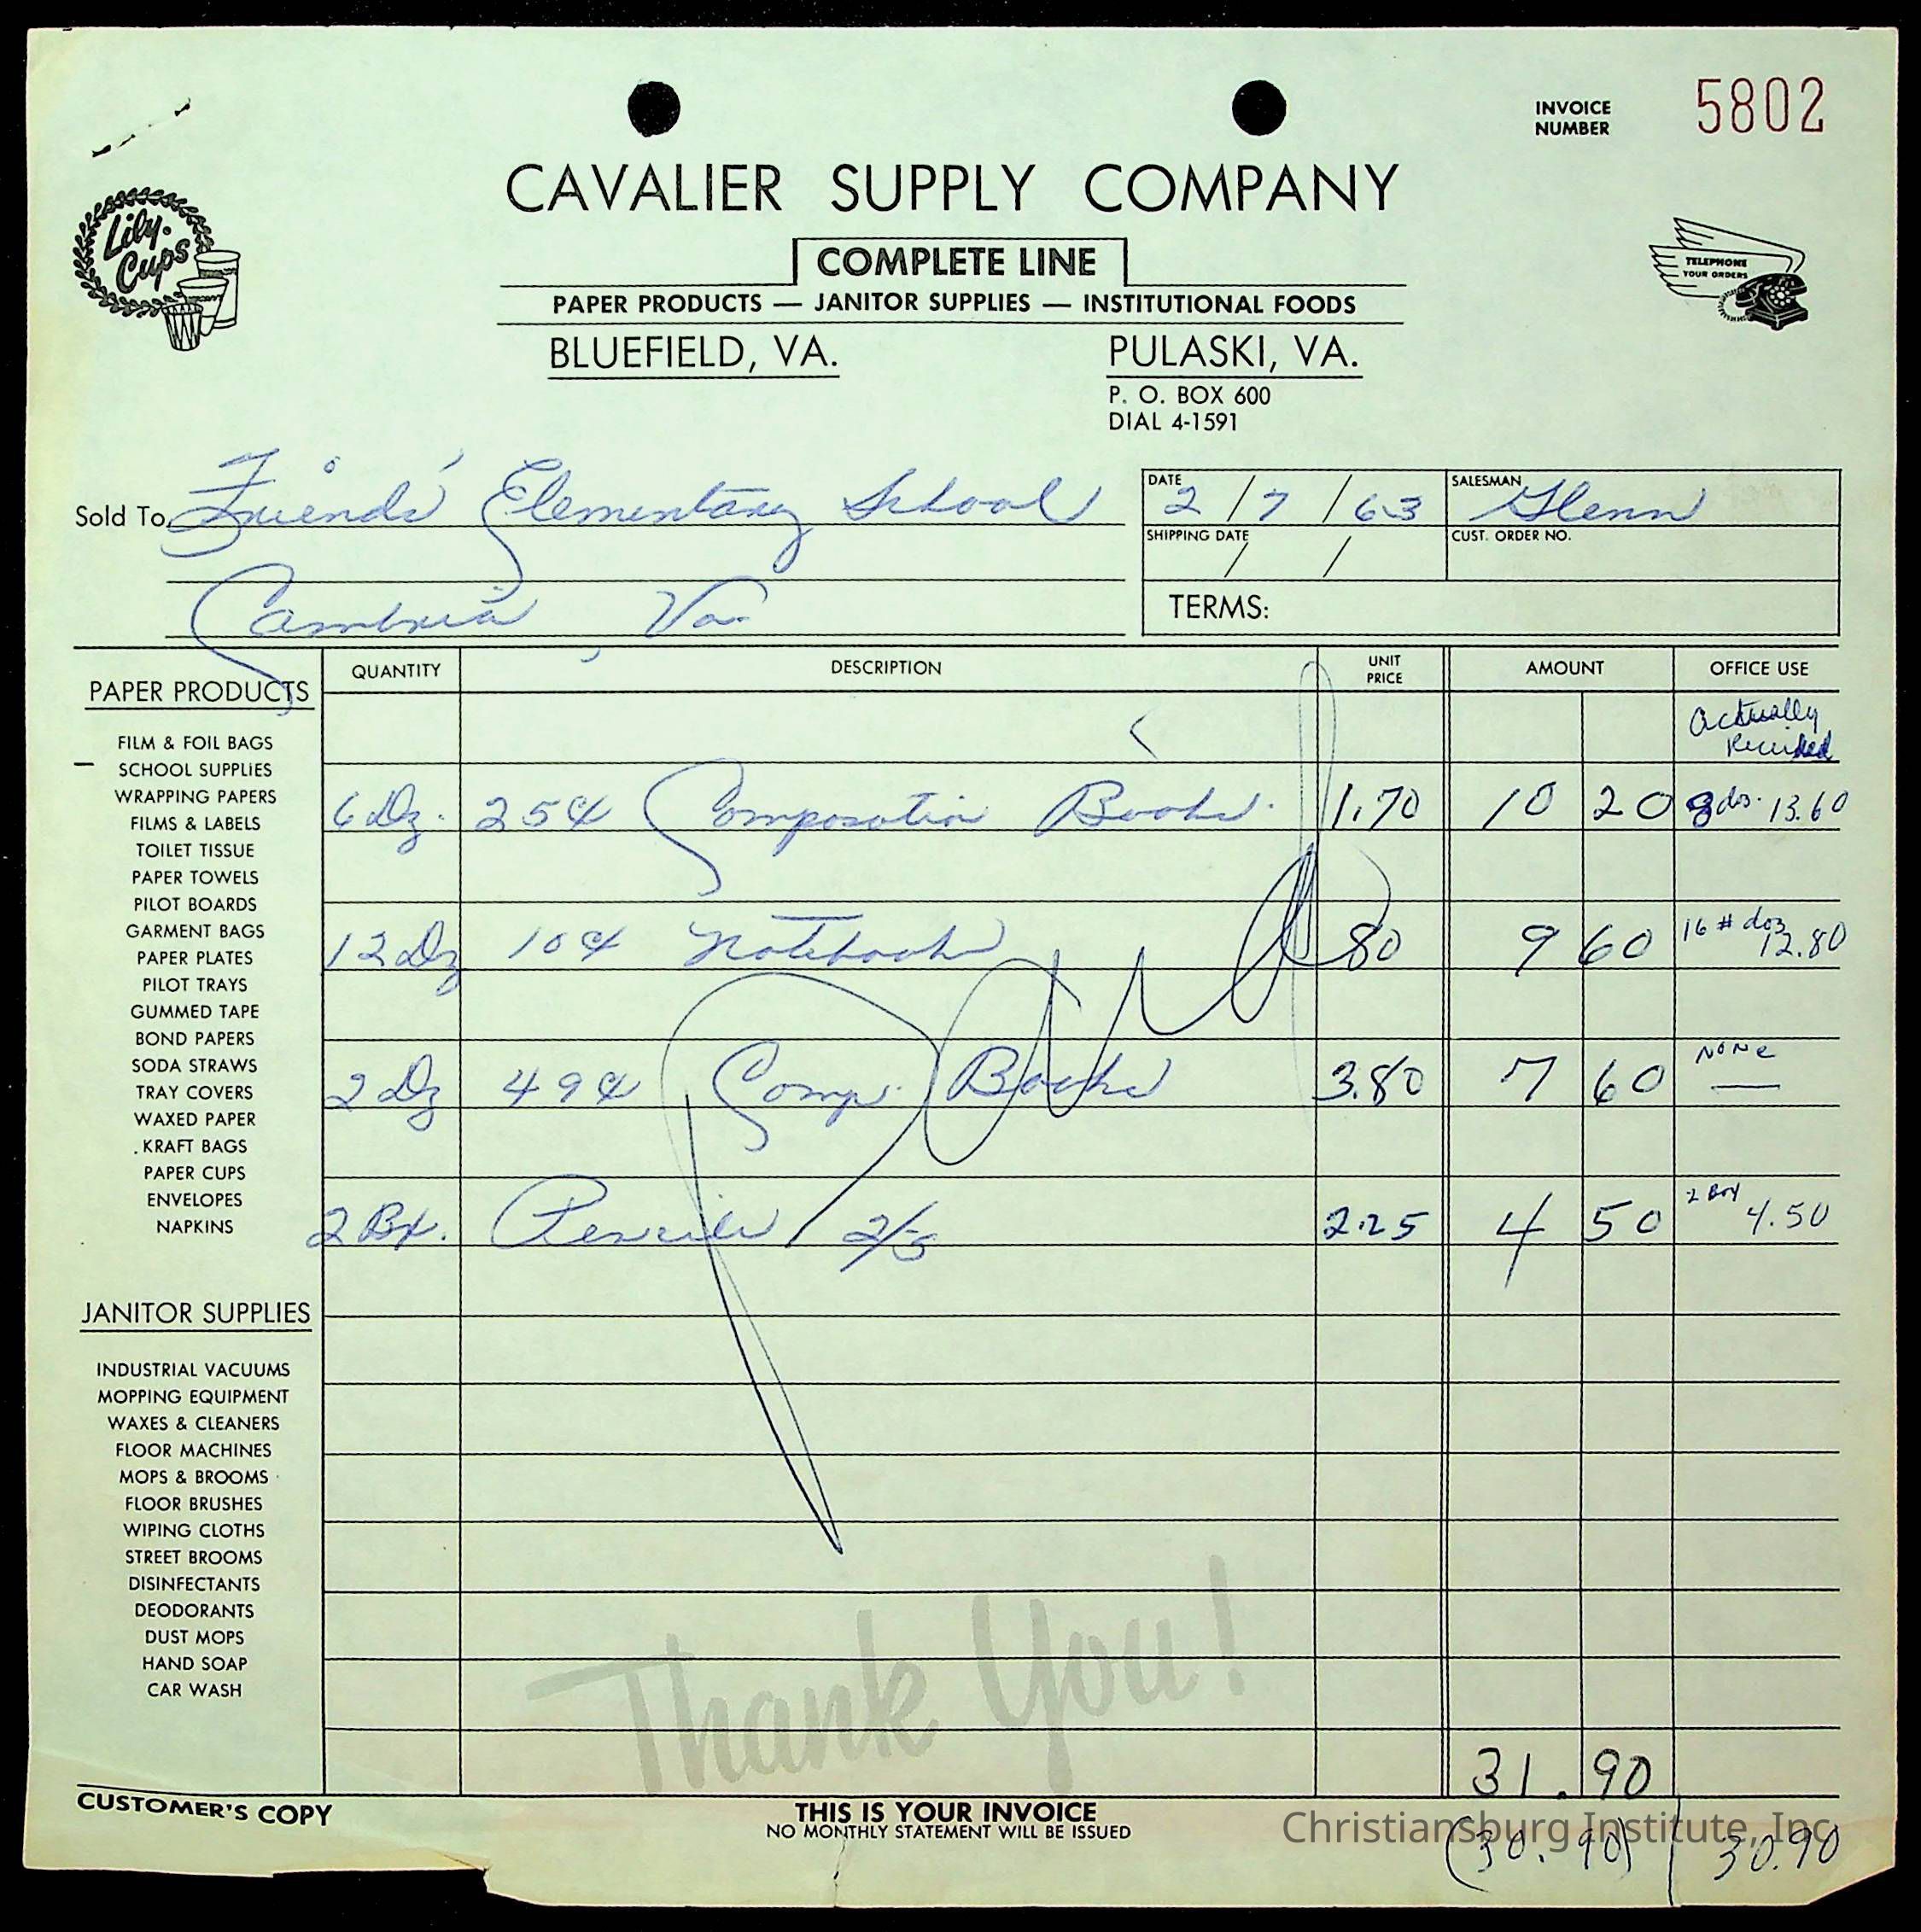 INVOICE
NUMBER
5802
CAVALIER SUPPLY COMPANY
Lily-
Cups
COMPLETE LINE
TELEPHONE
YOUR ORDERS
PAPER PRODUCTS — JANITOR SUPPLIES — INSTITUTIONAL FOODS
BLUEFIELD, VA.
PULASKI, VA.
P. O. BOX 600
DIAL 4-1591
Sold To Friends' Elementary School
Cambria Va.
DATE 2/7/63
SALESMAN Glenn
SHIPPING DATE / /
CUST. ORDER NO.
TERMS:
QUANTITY DESCRIPTION UNIT PRICE AMOUNT OFFICE USE
actually
received
6 Dz. 25¢ Composition Books. 1.70 10 20 8 dos. 13.60
12 Dz 10¢ Notebook 80 9 60 16 # doz 12.80
2 Dz 49¢ Comp. Books 3.80 7 60 NONE —
2 Bx. Pencils 2/5 2.25 4 50 2 Box 4.50
31.90
(30.90) 30.90
PAPER PRODUCTS
FILM & FOIL BAGS
SCHOOL SUPPLIES
WRAPPING PAPERS
FILMS & LABELS
TOILET TISSUE
PAPER TOWELS
PILOT BOARDS
GARMENT BAGS
PAPER PLATES
PILOT TRAYS
GUMMED TAPE
BOND PAPERS
SODA STRAWS
TRAY COVERS
WAXED PAPER
KRAFT BAGS
PAPER CUPS
ENVELOPES
NAPKINS
JANITOR SUPPLIES
INDUSTRIAL VACUUMS
MOPPING EQUIPMENT
WAXES & CLEANERS
FLOOR MACHINES
MOPS & BROOMS
FLOOR BRUSHES
WIPING CLOTHS
STREET BROOMS
DISINFECTANTS
DEODORANTS
DUST MOPS
HAND SOAP
CAR WASH
Thank You!
CUSTOMER'S COPY
THIS IS YOUR INVOICE
NO MONTHLY STATEMENT WILL BE ISSUED
Christiansburg Institute, Inc.